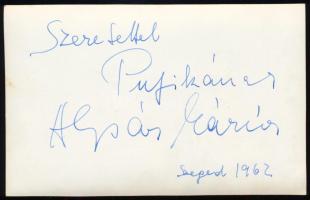 Szeretettel
Pufikának
Alpár Mária
Szeged 1962